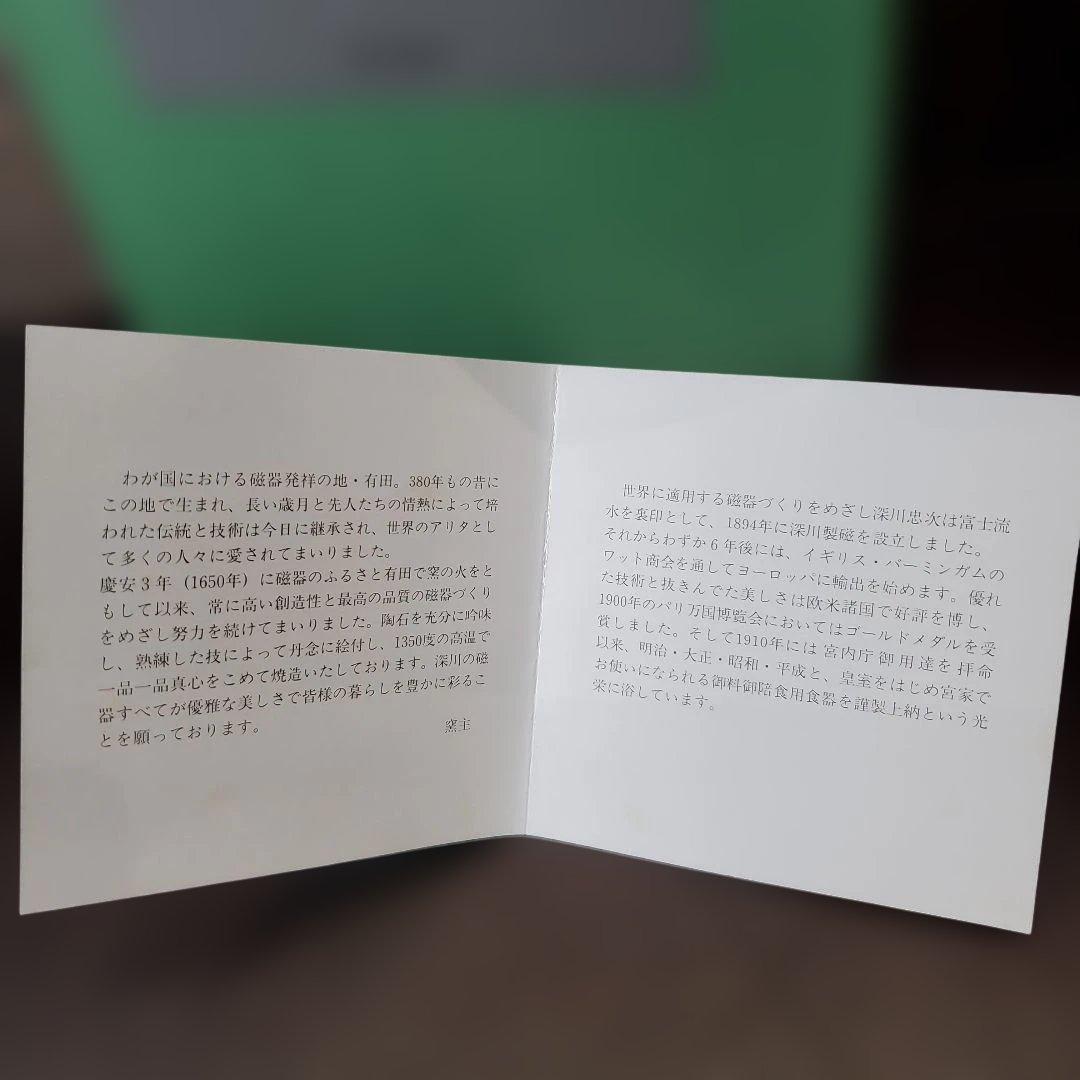 わが国における磁器発祥の地・有田。380年もの昔に
この地で生まれ、長い歳月と先人たちの情熱によって培
われた伝統と技術は今日に継承され、世界のアリタとし
て多くの人々に愛されてまいりました。
慶安3年（1650年）に磁器のふるさと有田で窯の火をと
もして以来、常に高い創造性と最高の品質の磁器づくり
をめざし努力を続けてまいりました。陶石を充分に吟味
し、熟練した技によって丹念に絵付し、1350度の高温で
一品一品真心をこめて焼造いたしております。深川の磁
器すべてが優雅な美しさで皆様の暮らしを豊かに彩るこ
とを願っております。
窯主
世界に適用する磁器づくりをめざし深川忠次は富士流
水を裏印として、1894年に深川製磁を設立しました。
それからわずか6年後には、イギリス・バーミンガムの
ワット商会を通してヨーロッパに輸出を始めます。優れ
た技術と抜きんでた美しさは欧米諸国で好評を博し、
1900年のパリ万国博覧会においてはゴールドメダルを受
賞しました。そして1910年には宮内庁御用達を拝命
以来、明治・大正・昭和・平成と、皇室をはじめ宮家で
お使いになられる御料御陪食用食器を謹製上納という光
栄に浴しています。